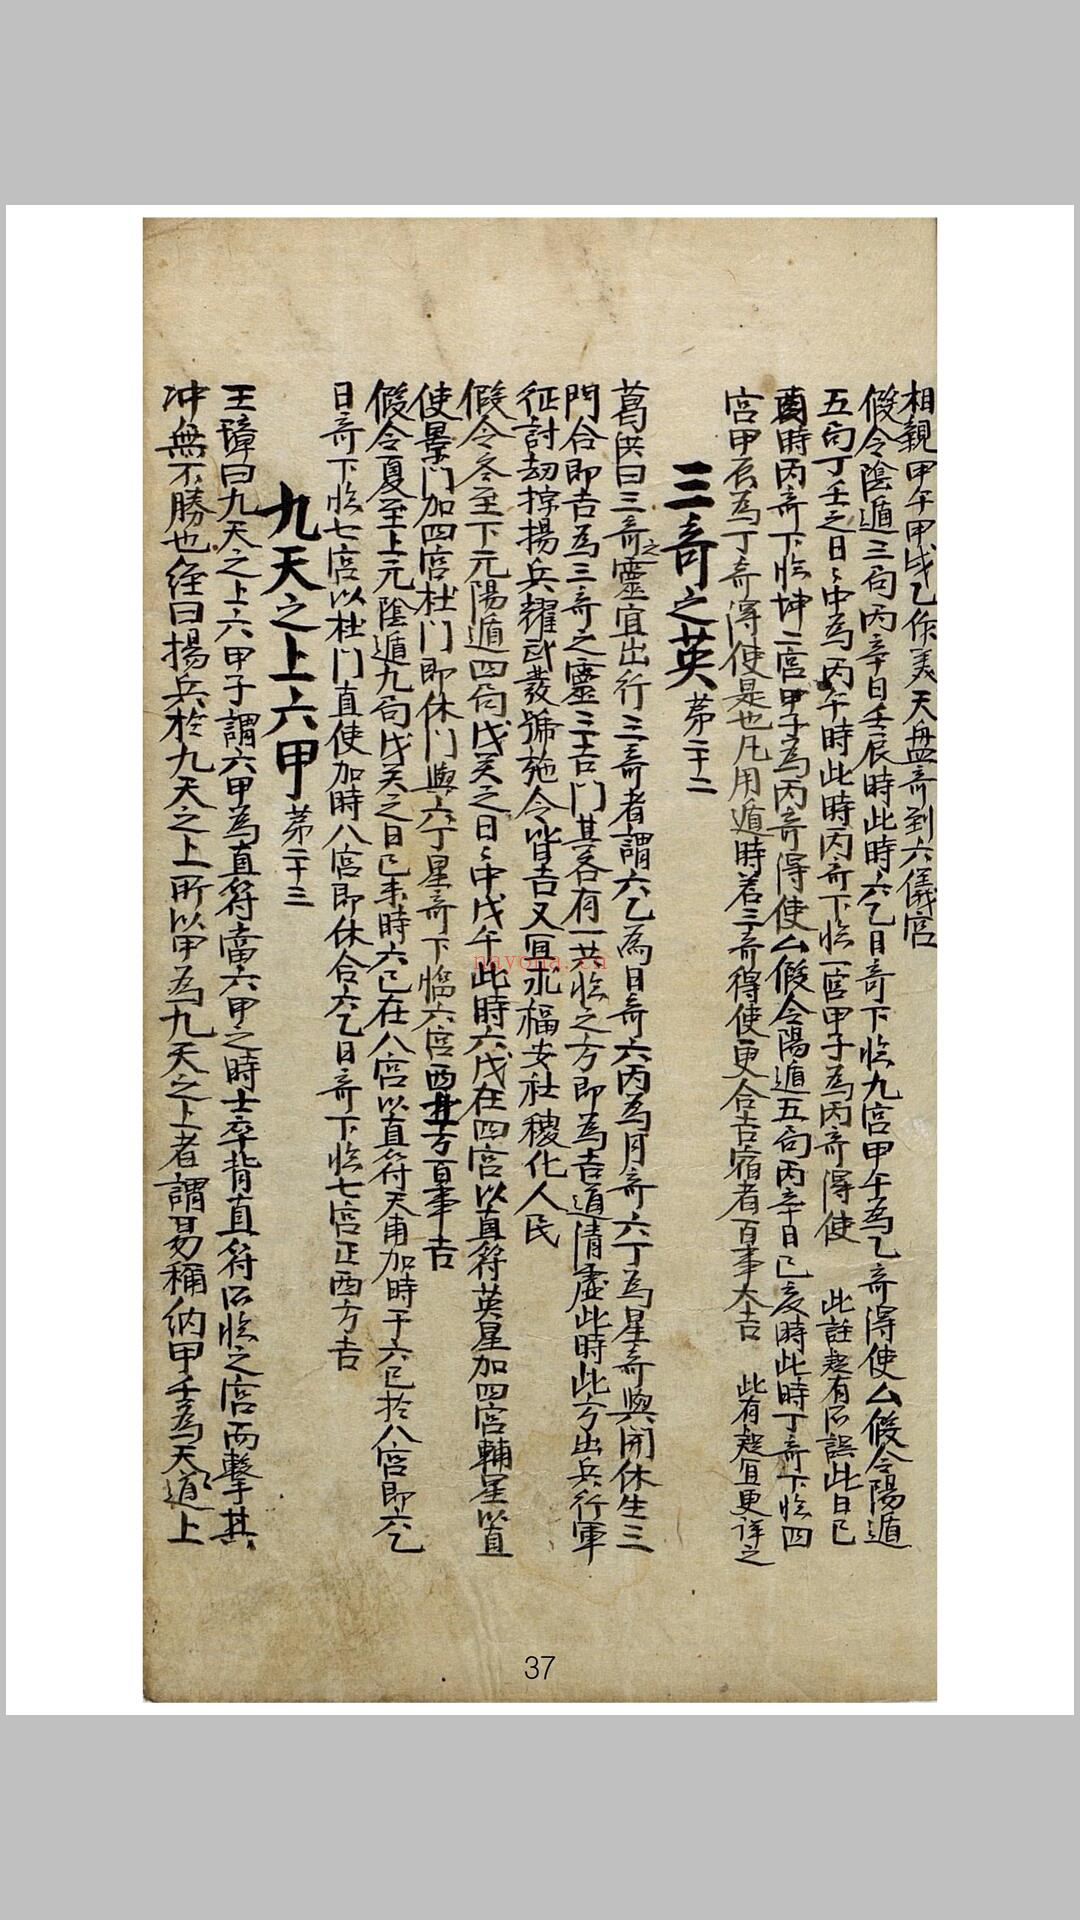 相親甲午甲戌乙你美天盘竒到六儀宫
假令陰遁三局丙辛日壬辰時此時六乙日竒下临九宫甲午為乙竒得使厶假令陽遁
五局丁壬之日〻中為丙午時此時丙竒下临一宫甲子為丙竒得使 此註疑有所誤此日已
酉時丙竒下临坤二宫甲子為丙竒得使厶假令陽遁五局丙辛日己亥時此時丁竒下临四
宫甲辰為丁竒得使是也凡用遁時若三竒得使更合吉宿者百事大吉 此有疑宜更详之
三竒之英 苐二十二
葛洪曰三竒之靈宜出行三竒者謂六乙為日竒六丙為月竒六丁為星竒與開休生三
門合即吉為三竒之靈三吉門其各有一共临之方即為吉道清虛此時此方出兵行軍
征討刼掠揚兵耀武發號施令皆吉又宜求福安社稷化人民
假令冬至下元陽遁四局戊癸之日〻中戊午此時六戊在四宫以直符英星加四宫輔星以直
使景門加四宫杜門即休門與六丁星竒下临六宫西北方百事吉
假令夏至上元陰遁九局戊癸之日己未時六己在八宫以直符天甫加時干六己於八宫即六乙
日竒下临七宫以杜門直使加時八宫即休合六乙日竒下临七宫正西方吉
九天之上六甲 苐二十三
王璋曰九天之上六甲子謂六甲為直符當六甲之時士卒背直符所临之宫而擊其
冲無不勝也经曰揚兵於九天之上所以甲為九天之上者謂易稱纳甲壬為天道上
nayona.cn
37